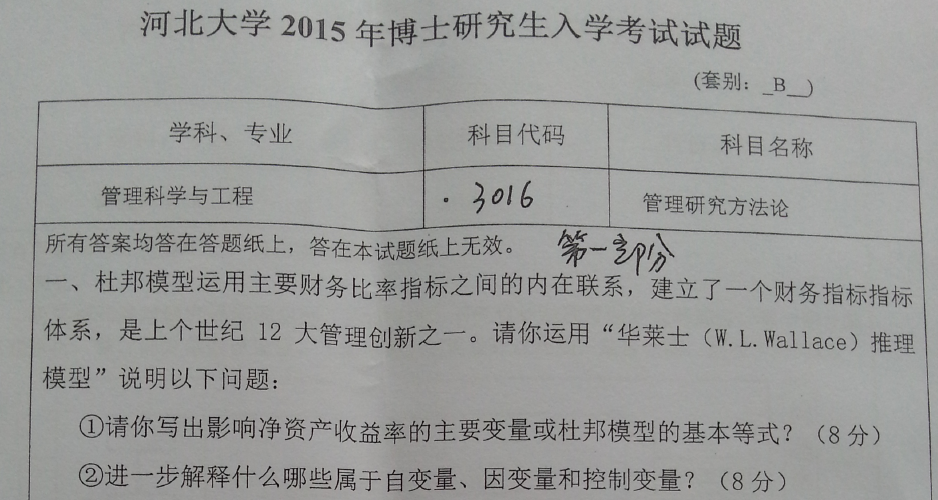 河北大学 2015 年博士研究生入学考试试题
(套别：_B__)
学科、专业 科目代码 科目名称
管理科学与工程 3016 管理研究方法论
所有答案均答在答题纸上，答在本试题纸上无效。 第一部分
一、杜邦模型运用主要财务比率指标之间的内在联系，建立了一个财务指标指标
体系，是上个世纪 12 大管理创新之一。请你运用“华莱士（W.L.Wallace）推理
模型”说明以下问题：
①请你写出影响净资产收益率的主要变量或杜邦模型的基本等式？（8 分）
②进一步解释什么哪些属于自变量、因变量和控制变量？（8 分）